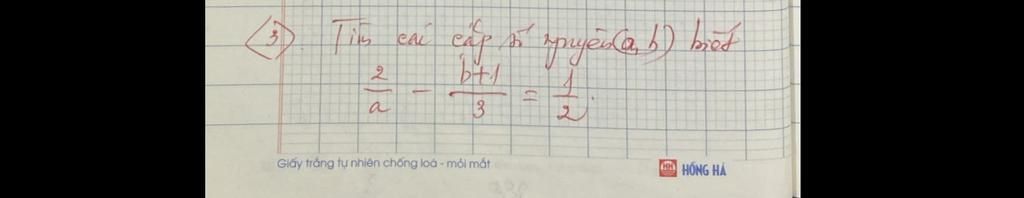 3). Tìm các cặp số nguyên (a, b) biết
2/a - (b+1)/3 = 1/2.
Giấy trắng tự nhiên chống loá - mỏi mắt
HH HỒNG HÀ